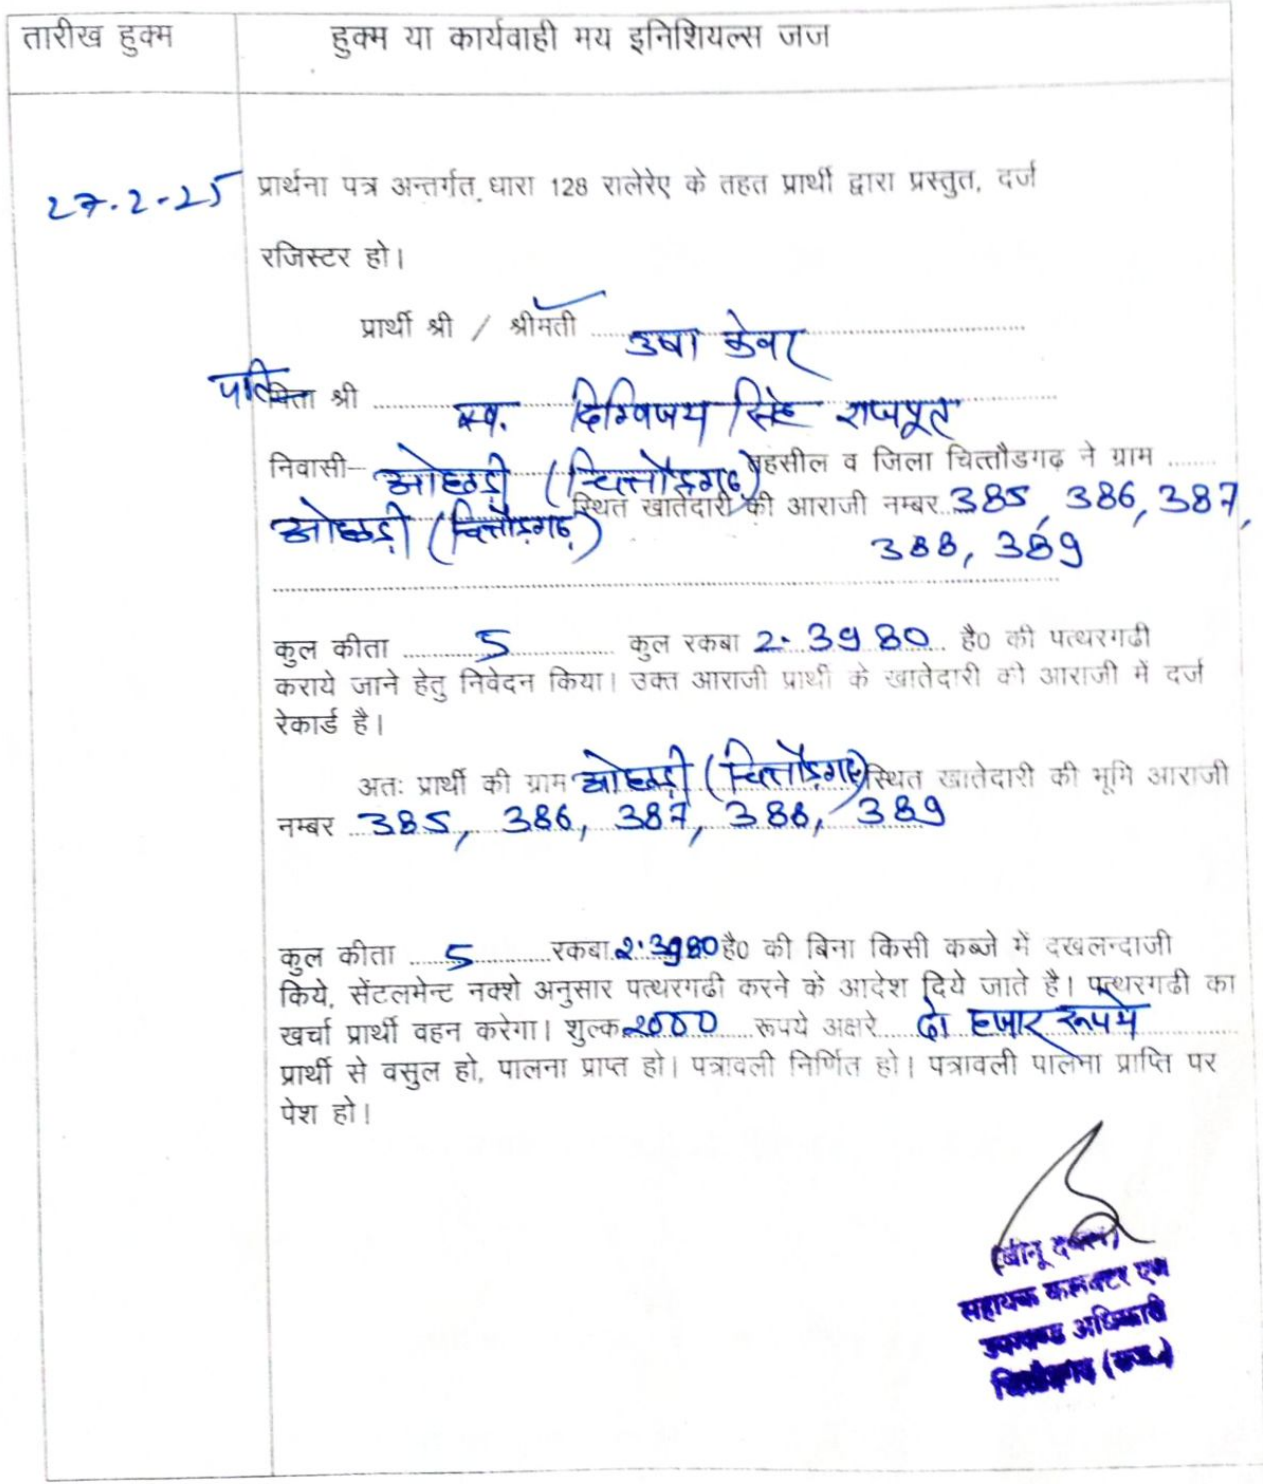 तारीख हुक्म
हुक्म या कार्यवाही मय इनिशियल्स जज
27.2.25
प्रार्थना पत्र अन्तर्गत धारा 128 रालेरेए के तहत प्रार्थी द्वारा प्रस्तुत, दर्ज
रजिस्टर हो।
प्रार्थी श्री / श्रीमती उषा केवर
पति पिता श्री स्व. दिग्विजय सिंह राजपूत
निवासी- ओछड़ी (चित्तौड़गढ़) तहसील व जिला चित्तौडगढ़ ने ग्राम ........
ओछड़ी (चित्तौड़गढ़) स्थित खातेदारी की आराजी नम्बर 385, 386, 387,
388, 389
कुल कीता 5 कुल रकबा 2.3980 है0 की पत्थरगढी
कराये जाने हेतु निवेदन किया। उक्त आराजी प्रार्थी के खातेदारी की आराजी में दर्ज
रेकार्ड है।
अतः प्रार्थी की ग्राम ओछड़ी (चित्तौड़गढ़) स्थित खातेदारी की भूमि आराजी
नम्बर 385, 386, 387, 388, 389
कुल कीता 5 रकबा 2.3980 है0 की बिना किसी कब्जे में दखलन्दाजी
किये, सेंटलमेन्ट नक्शे अनुसार पत्थरगढी करने के आदेश दिये जाते है। पत्थरगढी का
खर्चा प्रार्थी वहन करेगा। शुल्क 2000 रूपये अक्षरे दो हजार रूपये
प्रार्थी से वसुल हो, पालना प्राप्त हो। पत्रावली निर्णित हो। पत्रावली पालना प्राप्ति पर
पेश हो।
(बीनू देवल)
सहायक कलक्टर एवं
उपखण्ड अधिकारी
चित्तौड़गढ़ (राज.)